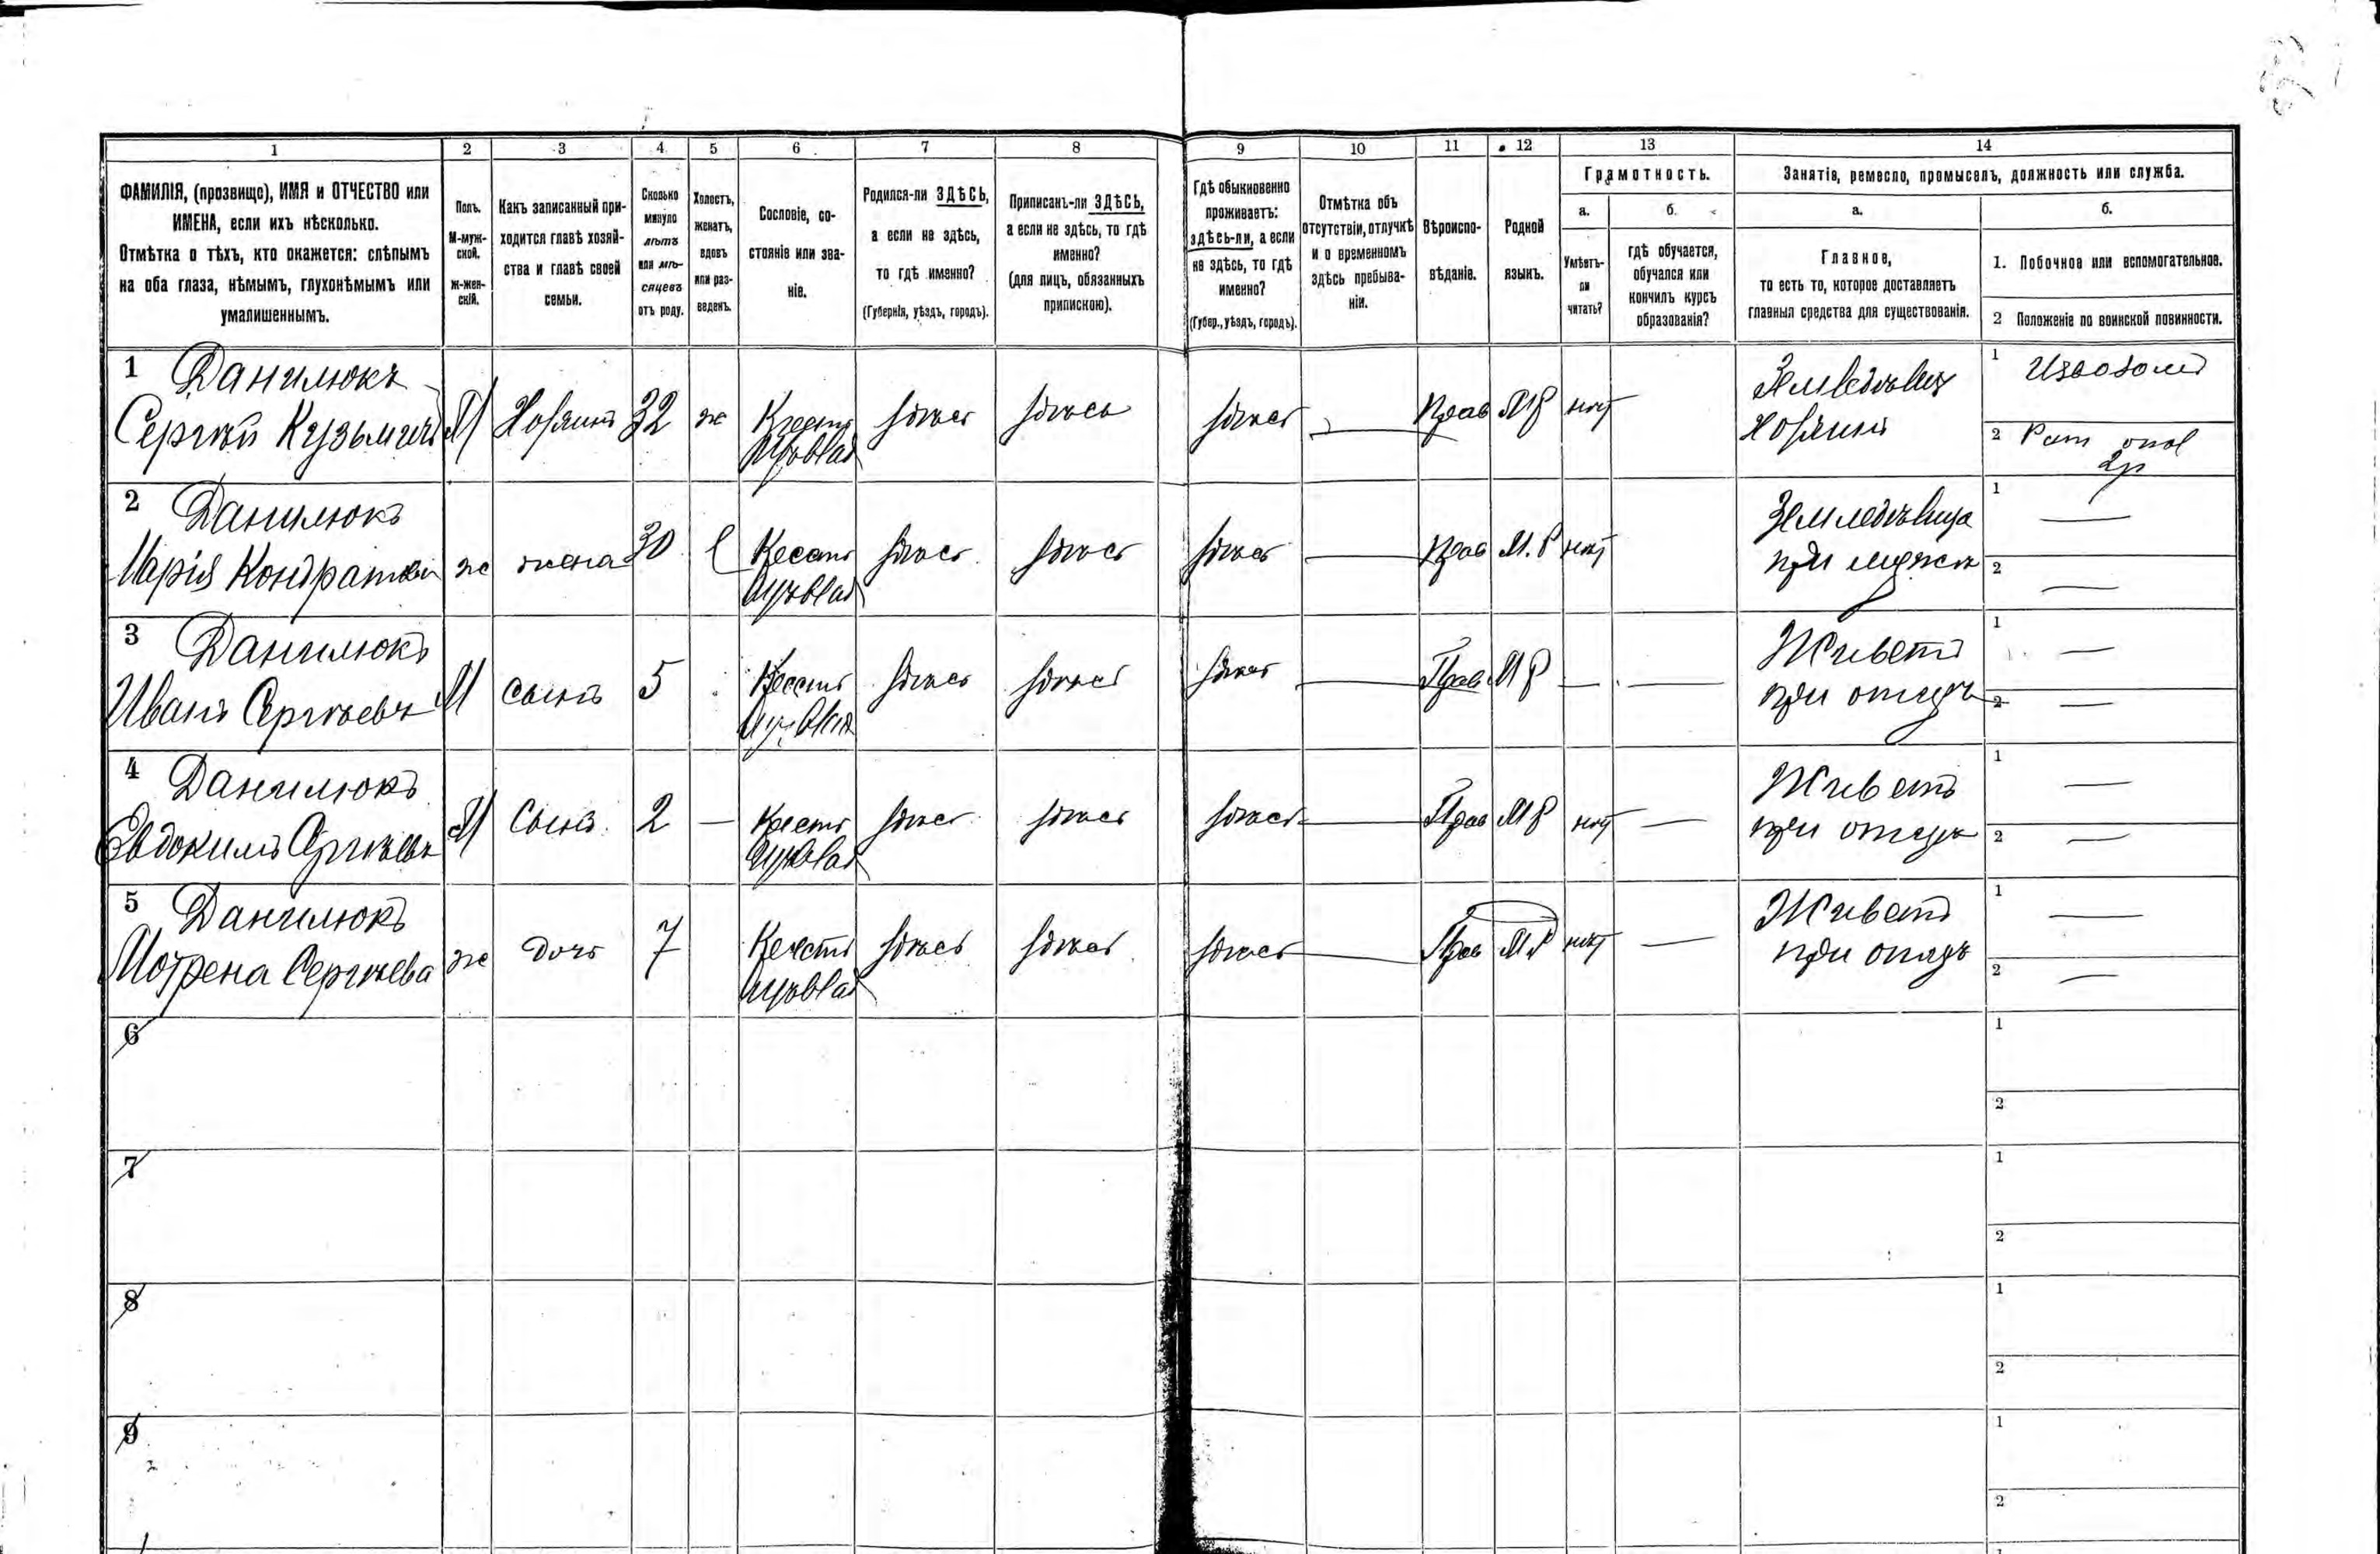 1 2 3 4 5 6 7 8 9 10 11 12 13 14
ФАМИЛІЯ, (прозвище), ИМЯ и ОТЧЕСТВО или
ИМЕНА, если ихъ нѣсколько.
Отмѣтка о тѣхъ, кто окажется: слѣпымъ
на оба глаза, нѣмымъ, глухонѣмымъ или
умалишеннымъ.
Полъ.
М-муж-
ской.
Ж-жен-
скій.
Какъ записанный при-
ходится главѣ хозяй-
ства и главѣ своей
семьи.
Сколько
минуло
лѣтъ
или мѣ-
сяцевъ
отъ роду.
Холостъ,
женатъ,
вдовъ
или раз-
веденъ.
Сословіе, со-
стояніе или зва-
ніе.
Родился-ли ЗДѢСЬ,
а если не здѣсь,
то гдѣ именно?
(Губернія, уѣздъ, городъ).
Приписанъ-ли ЗДѢСЬ,
а если не здѣсь, то гдѣ
именно?
(для лицъ, обязанныхъ
припискою).
Гдѣ обыкновенно
проживаетъ:
здѣсь-ли, а если
не здѣсь, то гдѣ
именно?
(Губер., уѣздъ, городъ).
Отмѣтка объ
отсутствіи, отлучкѣ
и о временномъ
здѣсь пребыва-
ніи.
Вѣроиспо-
вѣданіе.
Родной
языкъ.
Грамотность.
а.
Умѣетъ-
ли
читать?
б.
гдѣ обучается,
обучался или
кончилъ курсъ
образованія?
Занятіе, ремесло, промыселъ, должность или служба.
а.
Главное,
то есть то, которое доставляетъ
главныя средства для существованія.
б.
1. Побочное или вспомогательное.
2 Положеніе по воинской повинности.
1 Данилюкъ
Сергѣй Кузьмичъ М Хозяинъ 32 ж Крестъ здѣсь здѣсь здѣсь — Прав МР нѣтъ
Земледѣлецъ
Хозяинъ
1 Извозомъ
2
2 Данилюкъ
Марія Кондратьев ж жена 30 Крестъ здѣсь здѣсь здѣсь — Прав М.Р нѣтъ
Земледѣлица
при мужѣ
1 —
2 —
3 Данилюкъ
Иванъ Сергѣевъ М сынъ 5 Крестъ здѣсь здѣсь здѣсь — Прав МР — —
Живетъ
при отцѣ
1 —
2 —
4 Данилюкъ
Евдокимъ Сергѣевъ М Сынъ 2 — Крестъ здѣсь здѣсь здѣсь — Прав МР нѣтъ —
Живетъ
при отцѣ
1 —
2 —
5 Данилюкъ
Мотрена Сергѣева ж дочь 7 Крестъ здѣсь здѣсь здѣсь — Прав М.Р нѣтъ —
Живетъ
при отцѣ
1 —
2 —
6
1
2
7
1
2
8
1
2
9
1
2